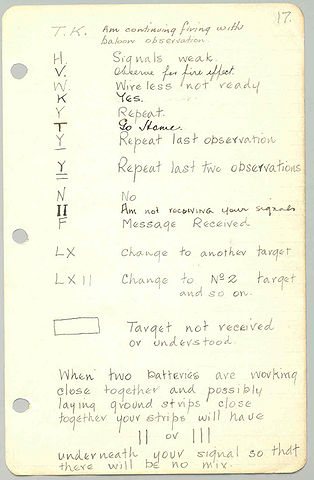 17.
T.K. Am continuing firing with
baloon observation.
H. Signals weak.
V. Observe for fire effect.
W. Wireless not ready
K Yes.
Y Repeat.
T Go Home.
Y Repeat last observation
Y Repeat last two observations
N No
II Am not receiving your signals
F Message Received
LX Change to another target
LX II Change to No 2 target
and so on.
Target not received
or understood.
When two batteries are working
close together and possibly
laying ground strips close
together your strips will have
II or III
underneath your signal so that
there will be no mix.